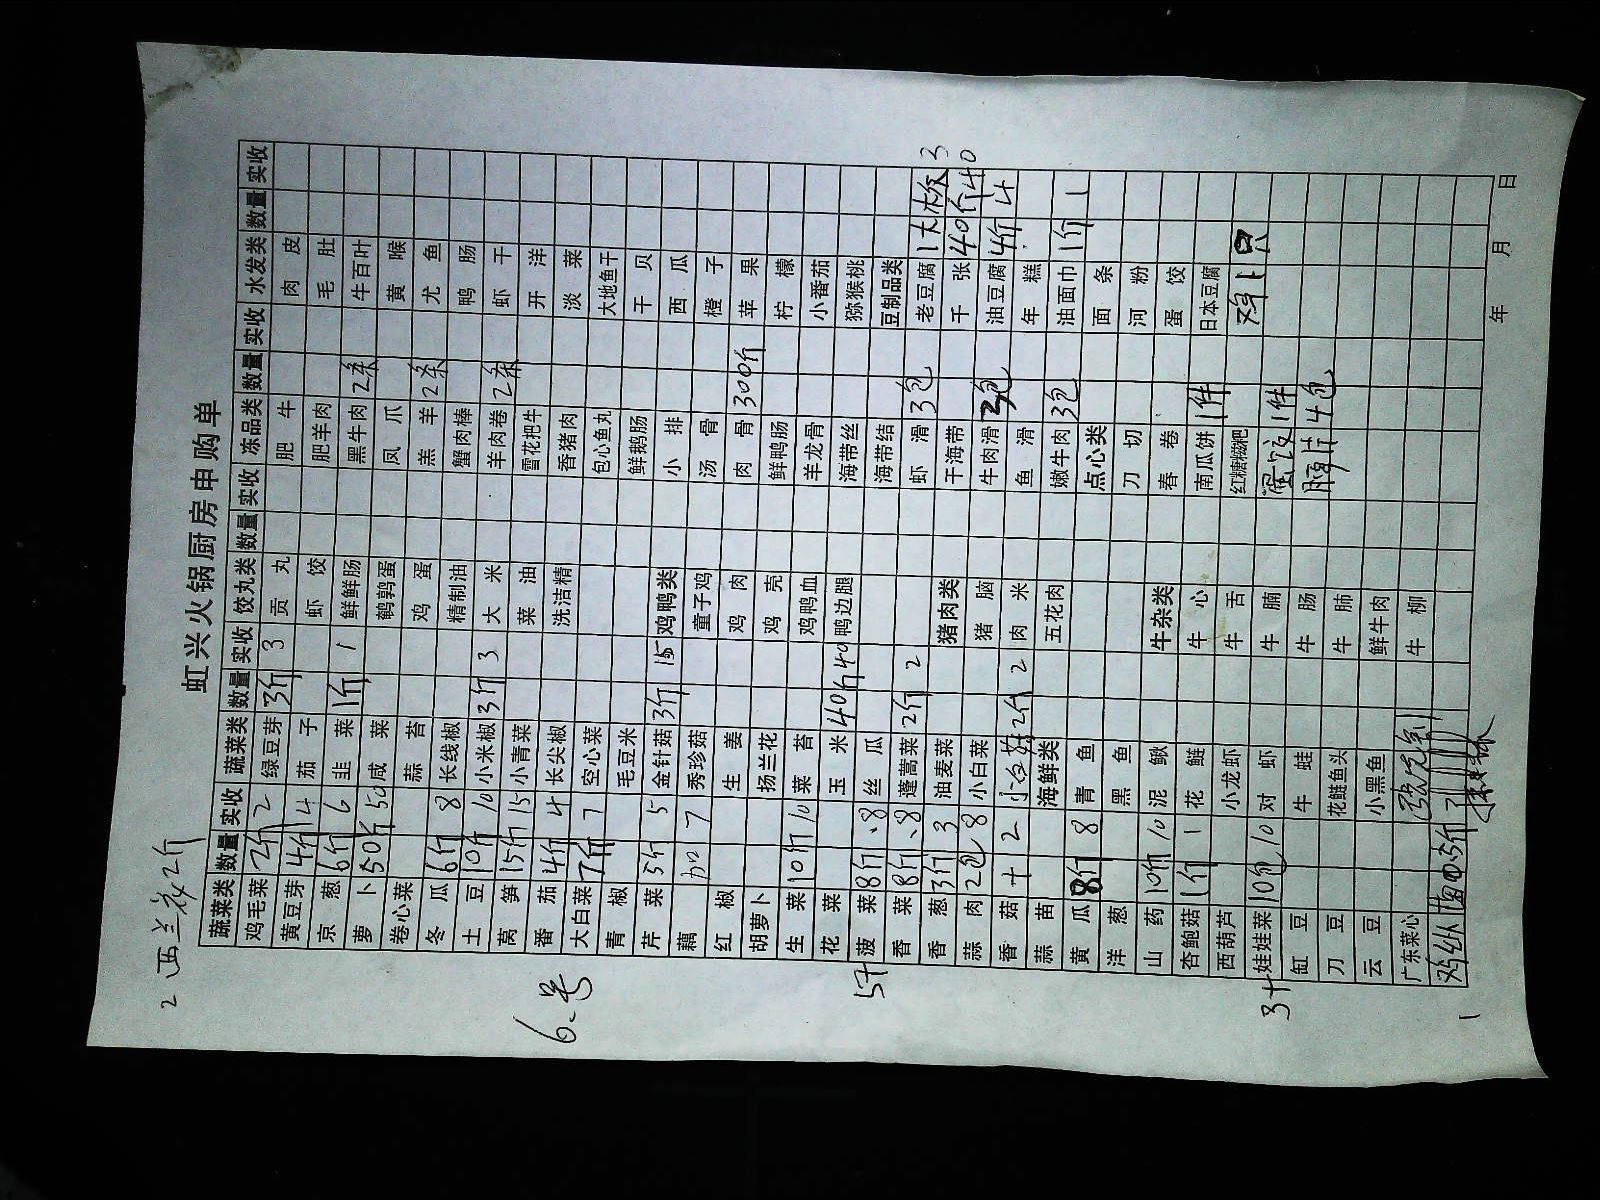 2 西兰花2斤
虹兴火锅厨房申购单
蔬菜类 数量 实收 蔬菜类 数量 实收 饺丸类 数量 实收 冻品类 数量 实收 水发类 数量 实收
鸡毛菜 2斤 2 绿豆芽 3斤 3 贡丸 肥牛 肉皮
黄豆芽 4斤 4 茄子 虾饺 肥羊肉 毛肚
京葱 6斤 6 韭菜 1斤 1 鲜鲜肠 黑牛肉 2条 牛百叶
萝卜 50斤 50 咸菜 鹌鹑蛋 凤爪 黄喉
卷心菜 蒜苔 鸡蛋 羔羊 2条 尤鱼
冬瓜 6斤 8 长线椒 精制油 蟹肉棒 鸭肠
土豆 10斤 10 小米椒 3斤 3 大米 羊肉卷 2条 虾干
莴笋 15斤 15 小青菜 菜油 雪花把牛 开洋
番茄 4斤 4 长尖椒 洗洁精 香猪肉 淡菜
大白菜 7斤 7 空心菜 包心鱼丸 大地鱼干
青椒 毛豆米 鲜鹅肠 干贝
芹菜 5斤 5 金针菇 3斤 15 鸡鸭类 小排 西瓜
藕 7 秀珍菇 童子鸡 汤骨 橙子
红椒 生姜 鸡肉 肉骨 300斤 苹果
胡萝卜 扬兰花 鸡壳 鲜鸭肠 柠檬
生菜 10斤 10 菜苔 鸡鸭血 羊龙骨 小番茄
花菜 玉米 40斤 40 鸭边腿 海带丝 猕猴桃
菠菜 8斤 8 丝瓜 海带结 豆制品类
香菜 8斤 8 蓬蒿菜 2斤 2 虾滑 3包 老豆腐 1大板 3
香葱 3斤 3 油麦菜 猪肉类 干海带 千张 40斤 40
蒜肉 2包 8 小白菜 猪脑 牛肉滑 3包 油豆腐 4斤 4
香菇 2 2斤 2 肉米 鱼滑 年糕
蒜苗 海鲜类 五花肉 嫩牛肉 3包 油面巾 1斤 1
黄瓜 8斤 8 青鱼 点心类 面条
洋葱 黑鱼 刀切 河粉
山药 10斤 10 泥鳅 牛杂类 春卷 蛋饺
杏鲍菇 1斤 1 花鲢 牛心 南瓜饼 1件 日本豆腐
西葫芦 小龙虾 牛舌 红糖糍粑 1只
娃娃菜 10包 10 对虾 牛腩 蛋饺 1件
缸豆 牛蛙 牛肠 4包
刀豆 花鲢鱼头 牛肺
云豆 小黑鱼 鲜牛肉
广东菜心 牛柳
年 月 日
6号